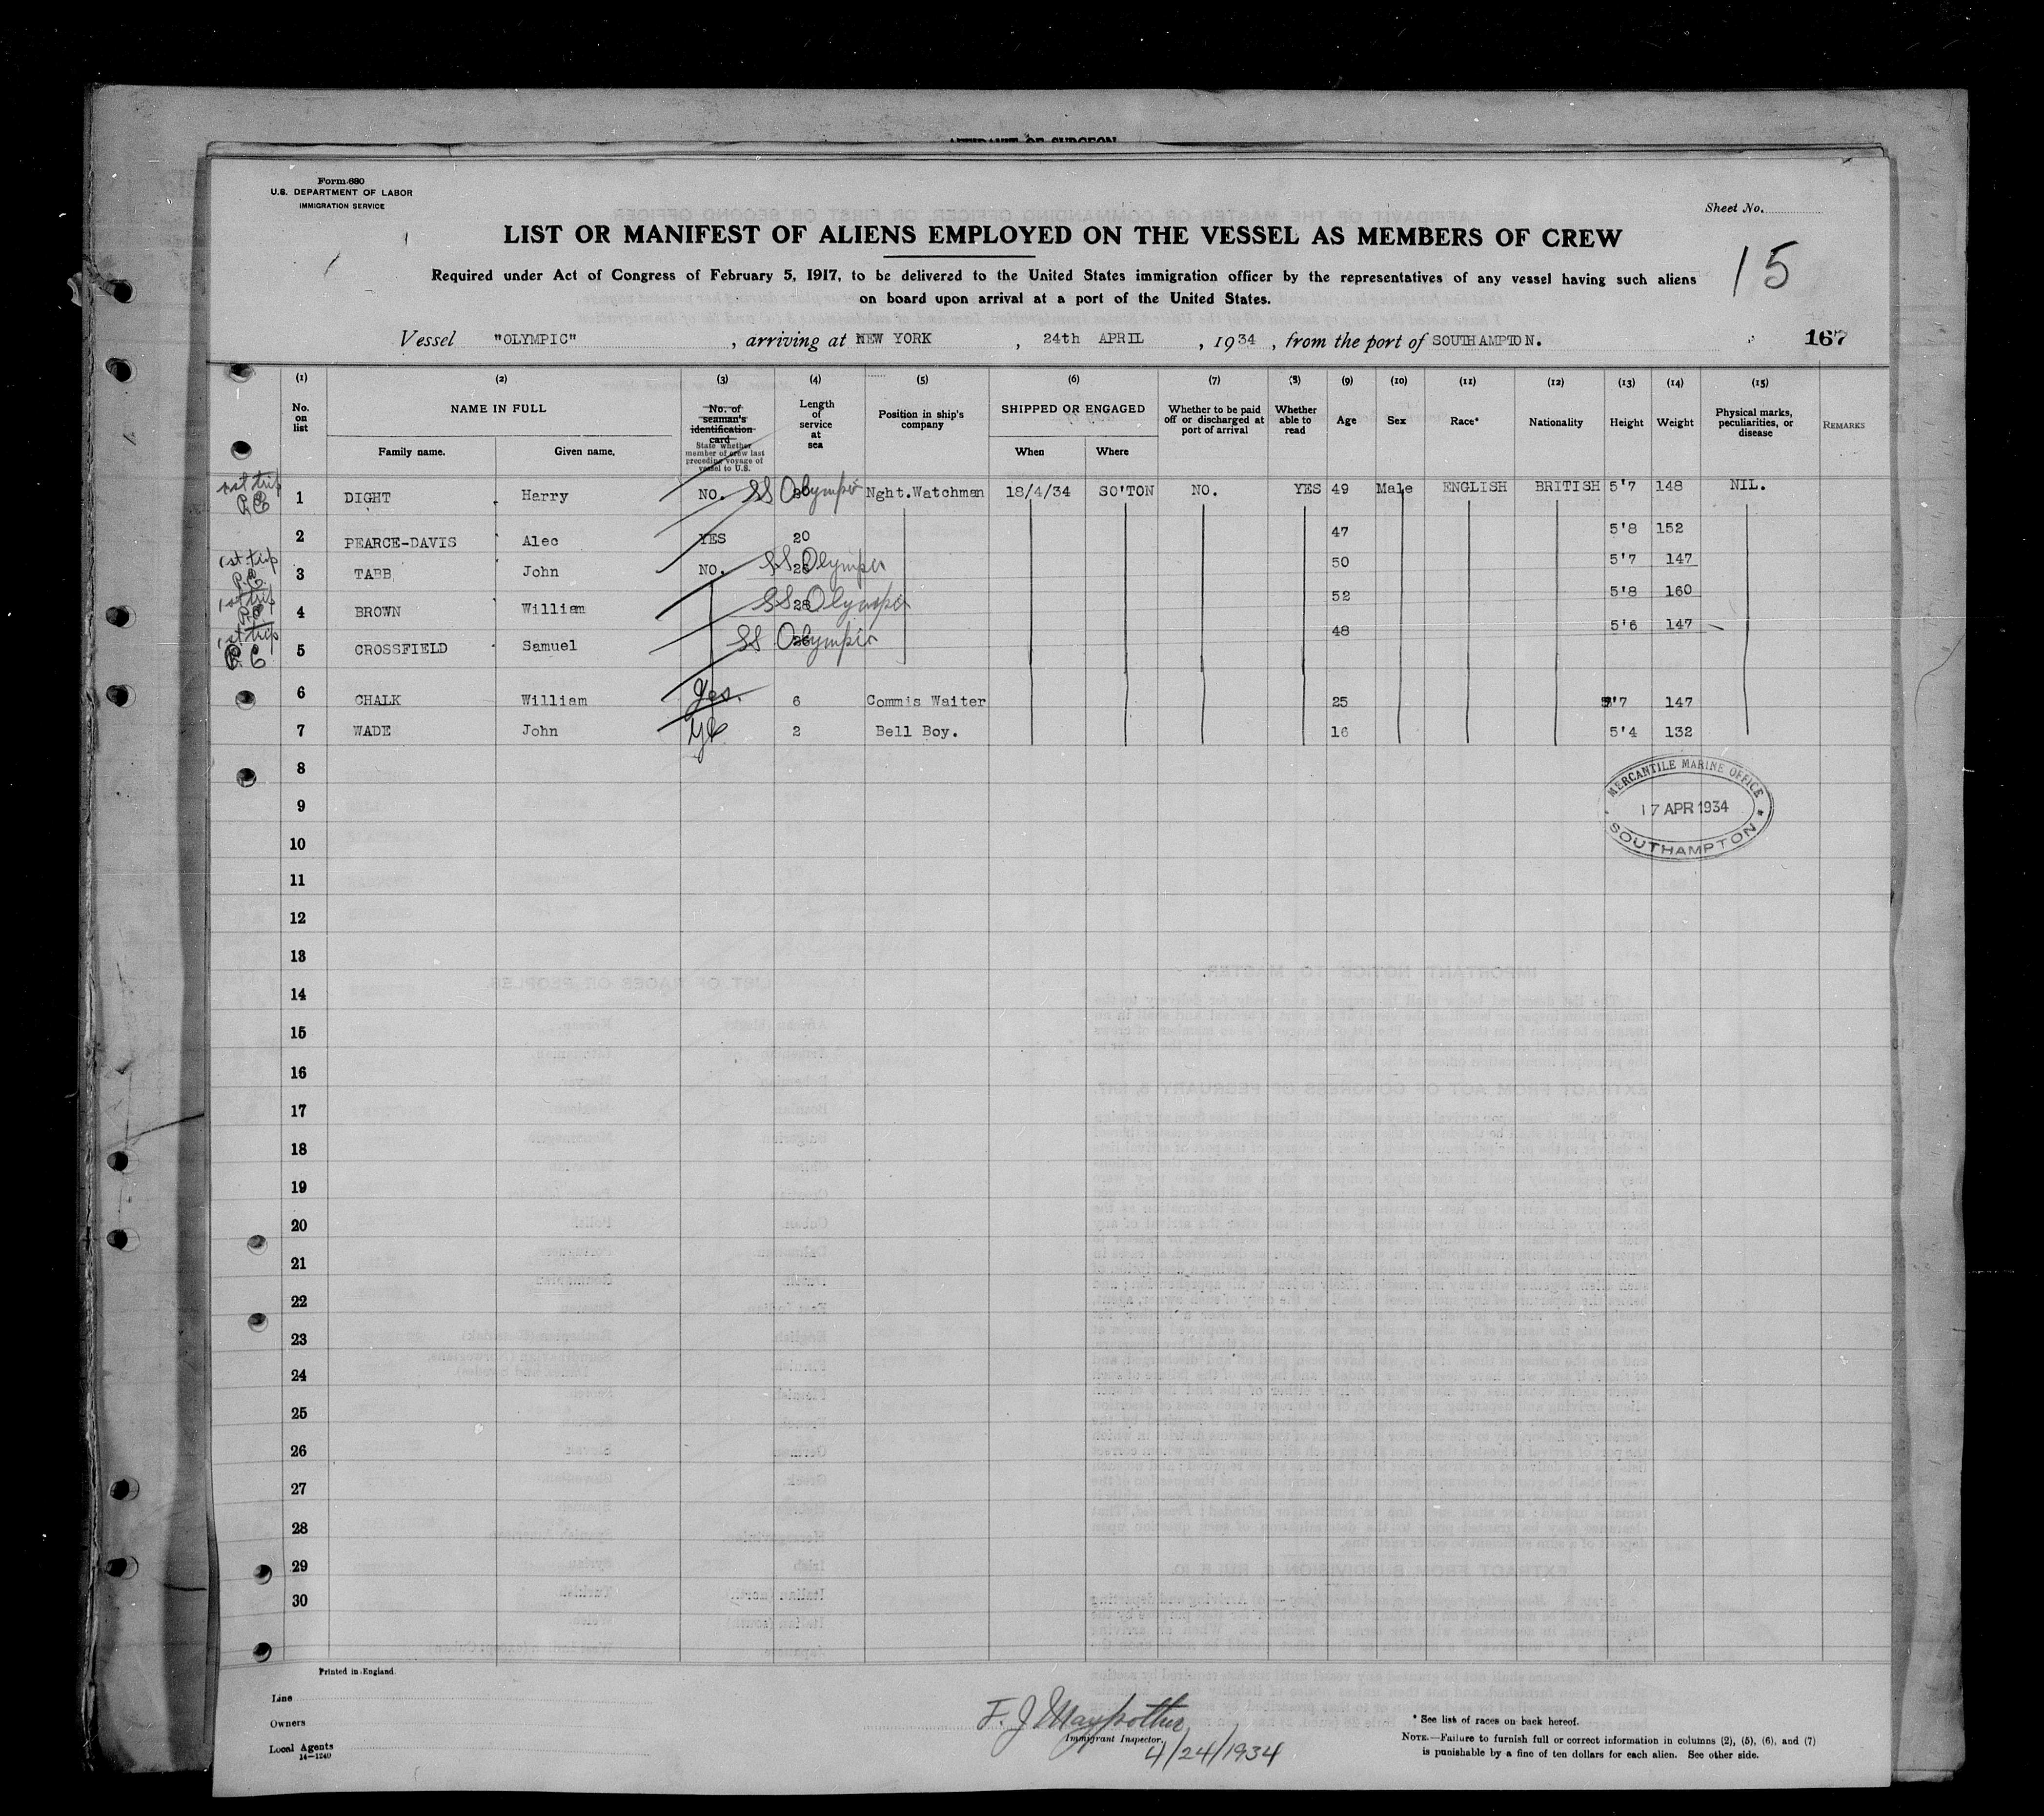 AFFIDAVIT OF SURGEON
Form 680
U.S. DEPARTMENT OF LABOR
IMMIGRATION SERVICE
Sheet No.
15
LIST OR MANIFEST OF ALIENS EMPLOYED ON THE VESSEL AS MEMBERS OF CREW
Required under Act of Congress of February 5, 1917, to be delivered to the United States immigration officer by the representatives of any vessel having such aliens
on board upon arrival at a port of the United States.
Vessel "OLYMPIC", arriving at NEW YORK, 24th APRIL, 1934, from the port of SOUTHAMPTON. 167
(1) (2) (3) (4) (5) (6) (7) (8) (9) (10) (11) (12) (13) (14) (15)
No. on list
NAME IN FULL
Family name. Given name.
No. of seaman's identification card
State whether member of crew last preceding voyage of vessel to U.S.
Length of service at sea
Position in ship's company
SHIPPED OR ENGAGED
When Where
Whether to be paid off or discharged at port of arrival
Whether able to read
Age
Sex
Race*
Nationality
Height
Weight
Physical marks, peculiarities, or disease
REMARKS
1st trip 1 DIGHT Harry NO. SS Olympic Nght.Watchman 18/4/34 SO'TON NO. YES 49 Male ENGLISH BRITISH 5'7 148 NIL.
2 PEARCE-DAVIS Alec YES 20 47 5'8 152
1st trip 3 TABB John NO. SS Olympic 50 5'7 147
1st trip 4 BROWN William 28 SS Olympic 52 5'8 160
1st trip 5 CROSSFIELD Samuel SS Olympic 48 5'6 147
6 CHALK William Yes. 6 Commis Waiter 25 5'7 147
7 WADE John Yes 2 Bell Boy. 16 5'4 132
8
MERCANTILE MARINE OFFICE
17 APR 1934
SOUTHAMPTON
9
10
11
12
13
14
15
16
17
18
19
20
21
22
23
24
25
26
27
28
29
30
Printed in England
Line
Owners
Local Agents
14-1240
F. J. Maypother
Immigrant Inspector.
4/24/1934
* See list of races on back hereof.
NOTE.—Failure to furnish full or correct information in columns (2), (5), (6), and (7)
is punishable by a fine of ten dollars for each alien. See other side.